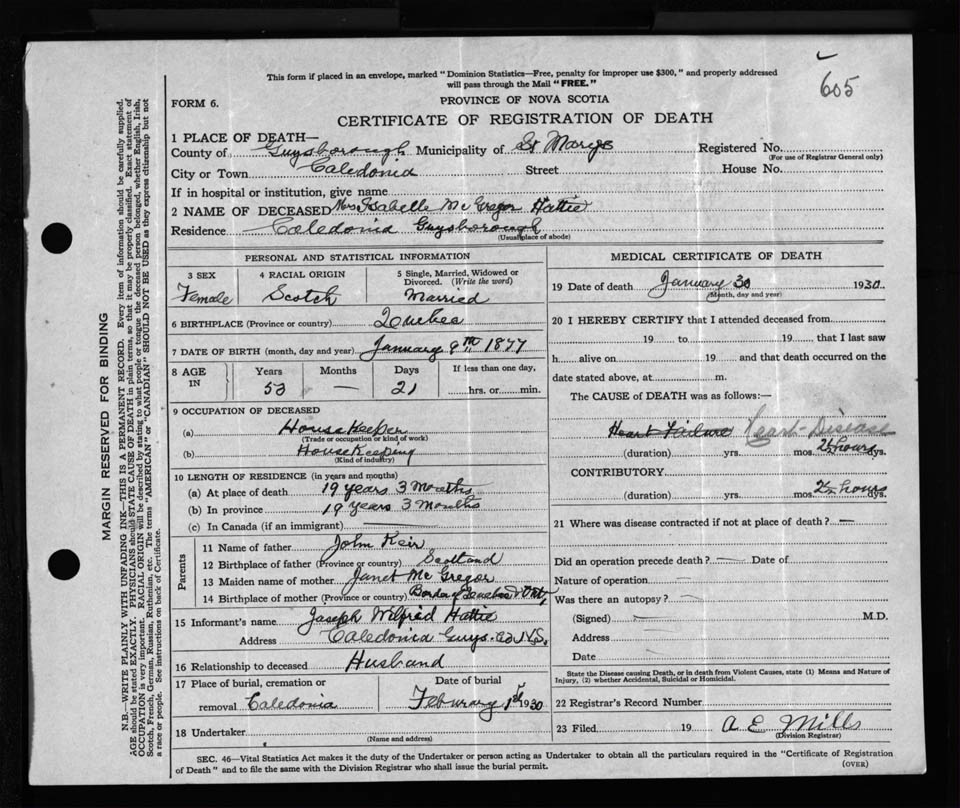 605
This form if placed in an envelope, marked "Dominion Statistics—Free, penalty for improper use $300," and properly addressed
will pass through the Mail "FREE."
FORM 6.
PROVINCE OF NOVA SCOTIA
CERTIFICATE OF REGISTRATION OF DEATH
1 PLACE OF DEATH—
County of Guysborough Municipality of St Marys Registered No.
(For use of Registrar General only)
City or Town Caledonia Street House No.
If in hospital or institution, give name
2 NAME OF DECEASED Mrs Isabelle McGregor Hattie
Residence Caledonia Guysborough
(Usual place of abode)
PERSONAL AND STATISTICAL INFORMATION
3 SEX 4 RACIAL ORIGIN 5 Single, Married, Widowed or
Divorced. (Write the word)
Female Scotch Married
6 BIRTHPLACE (Province or country) Quebec
7 DATE OF BIRTH (month, day and year) January 9th 1877
8 AGE IN Years Months Days If less than one day,
53 — 21 hrs. or min.
9 OCCUPATION OF DECEASED
(a) House Keeper
(Trade or occupation or kind of work)
(b) House Keeping
(Kind of industry)
10 LENGTH OF RESIDENCE (in years and months)
(a) At place of death 19 years 3 Months
(b) In province 19 years 3 Months
(c) In Canada (if an immigrant)
Parents
11 Name of father John Keir
12 Birthplace of father (Province or country) Scotland
13 Maiden name of mother Janet McGregor
14 Birthplace of mother (Province or country) Border of Quebec & Ont,
15 Informant's name Joseph Wilfred Hattie
Address Caledonia Guys. Co N.S.
16 Relationship to deceased Husband
17 Place of burial, cremation or Date of burial
removal Caledonia Feburary 1st 1930
18 Undertaker
(Name and address)
MEDICAL CERTIFICATE OF DEATH
19 Date of death January 30 1930
(Month, day and year)
20 I HEREBY CERTIFY that I attended deceased from
19 to 19 that I last saw
h alive on 19 and that death occurred on the
date stated above, at m.
The CAUSE of DEATH was as follows:—
Heart Failure Heart Disease
(duration) yrs. mos. hours dys.
CONTRIBUTORY
(duration) yrs. mos. hours dys.
21 Where was disease contracted if not at place of death? —
Did an operation precede death? — Date of
Nature of operation —
Was there an autopsy? —
(Signed) — M.D.
Address
Date —
State the Disease causing Death, or in death from Violent Causes, state (1) Means and Nature of
Injury, (2) whether Accidental, Suicidal or Homicidal.
22 Registrar's Record Number
23 Filed 19 A E Mills
(Division Registrar)
SEC. 46—Vital Statistics Act makes it the duty of the Undertaker or person acting as Undertaker to obtain all the particulars required in the "Certificate of Registration
of Death" and to file the same with the Division Registrar who shall issue the burial permit.
(OVER)
MARGIN RESERVED FOR BINDING
N.B.—WRITE PLAINLY WITH UNFADING INK—THIS IS A PERMANENT RECORD. Every item of information should be carefully supplied.
AGE should be stated EXACTLY. PHYSICIANS should STATE CAUSE OF DEATH in plain terms, so that it may be properly classified. Exact statement of
OCCUPATION is very important. RACIAL ORIGIN will be described by stating to what people or tongue the deceased person belonged, whether English, Irish,
Scotch, French, German, Russian, Ruthenian, etc. The terms "AMERICAN" or "CANADIAN" SHOULD NOT BE USED as they express citizenship but not
a race or people. See instructions on back of Certificate.